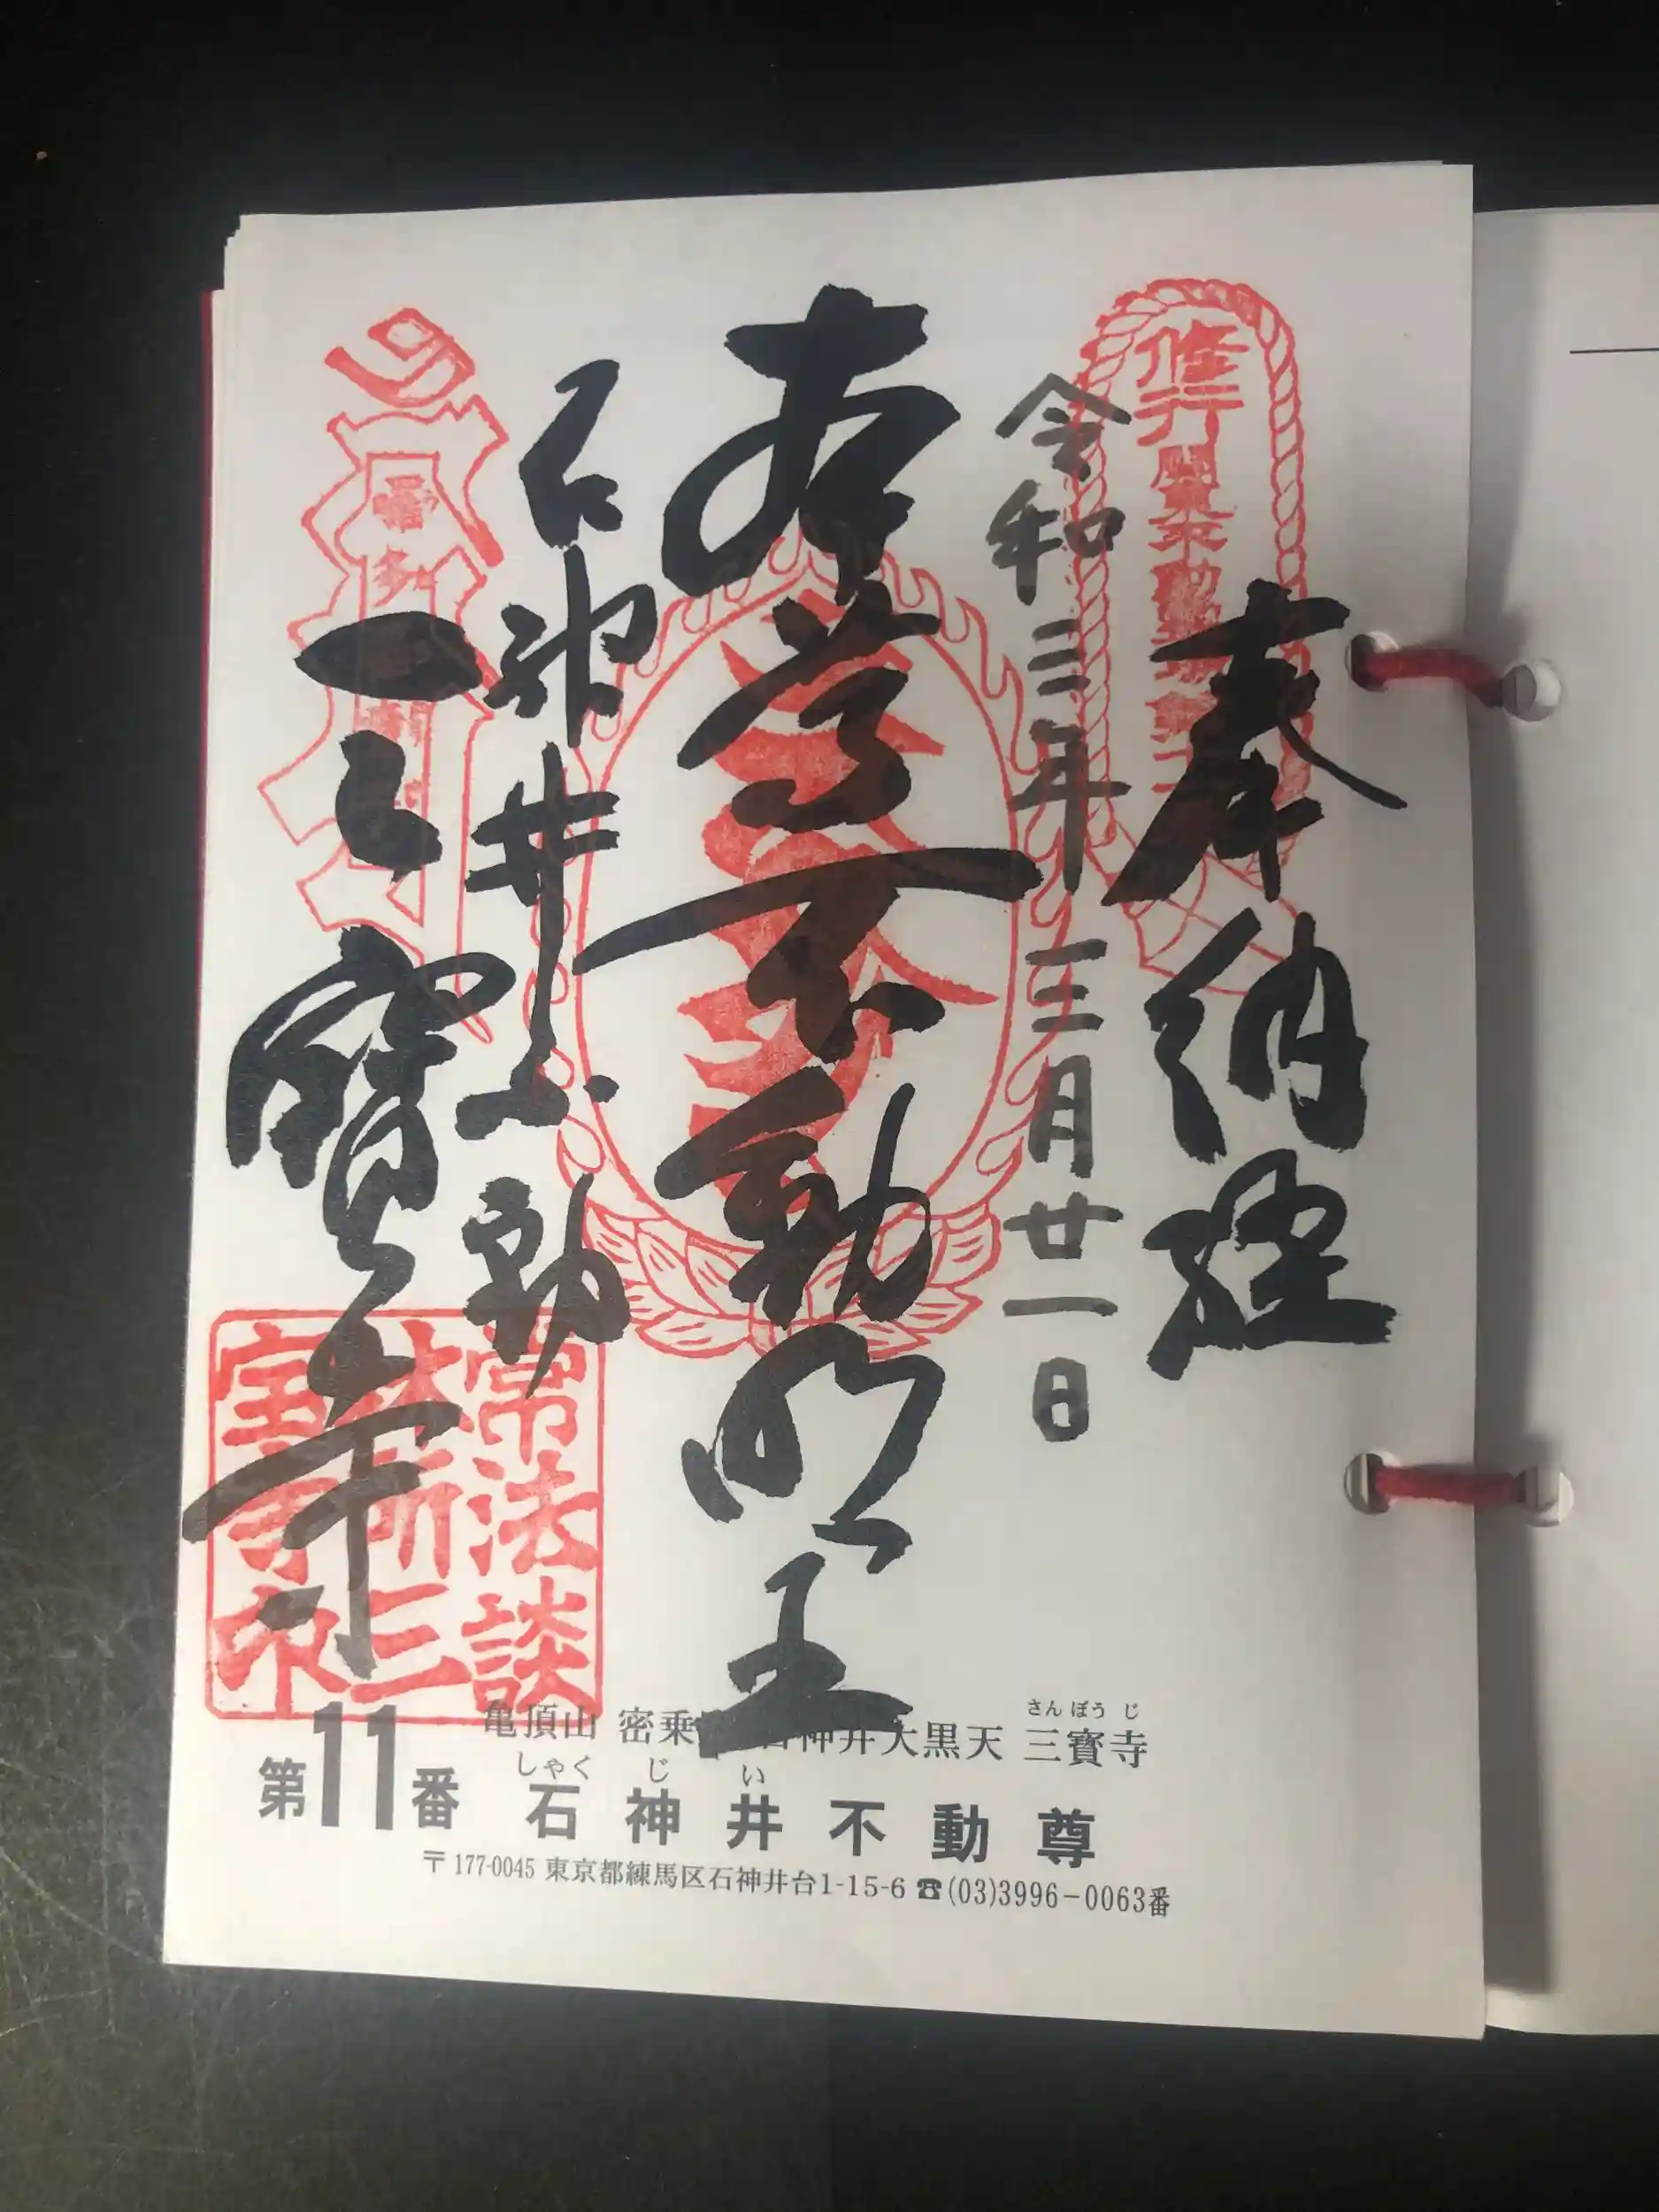 奉納経
令和三年三月廿一日
本尊不動明王
石神井不動
三寶寺
修行
関東不動
常法談
林所三
宝寺印
亀頂山 密乗 石神井大黒天 三寶寺
さんぽうじ
第11番 石神井不動尊
しゃくじい
〒177-0045 東京都練馬区石神井台1-15-6 ☎(03)3996-0063番